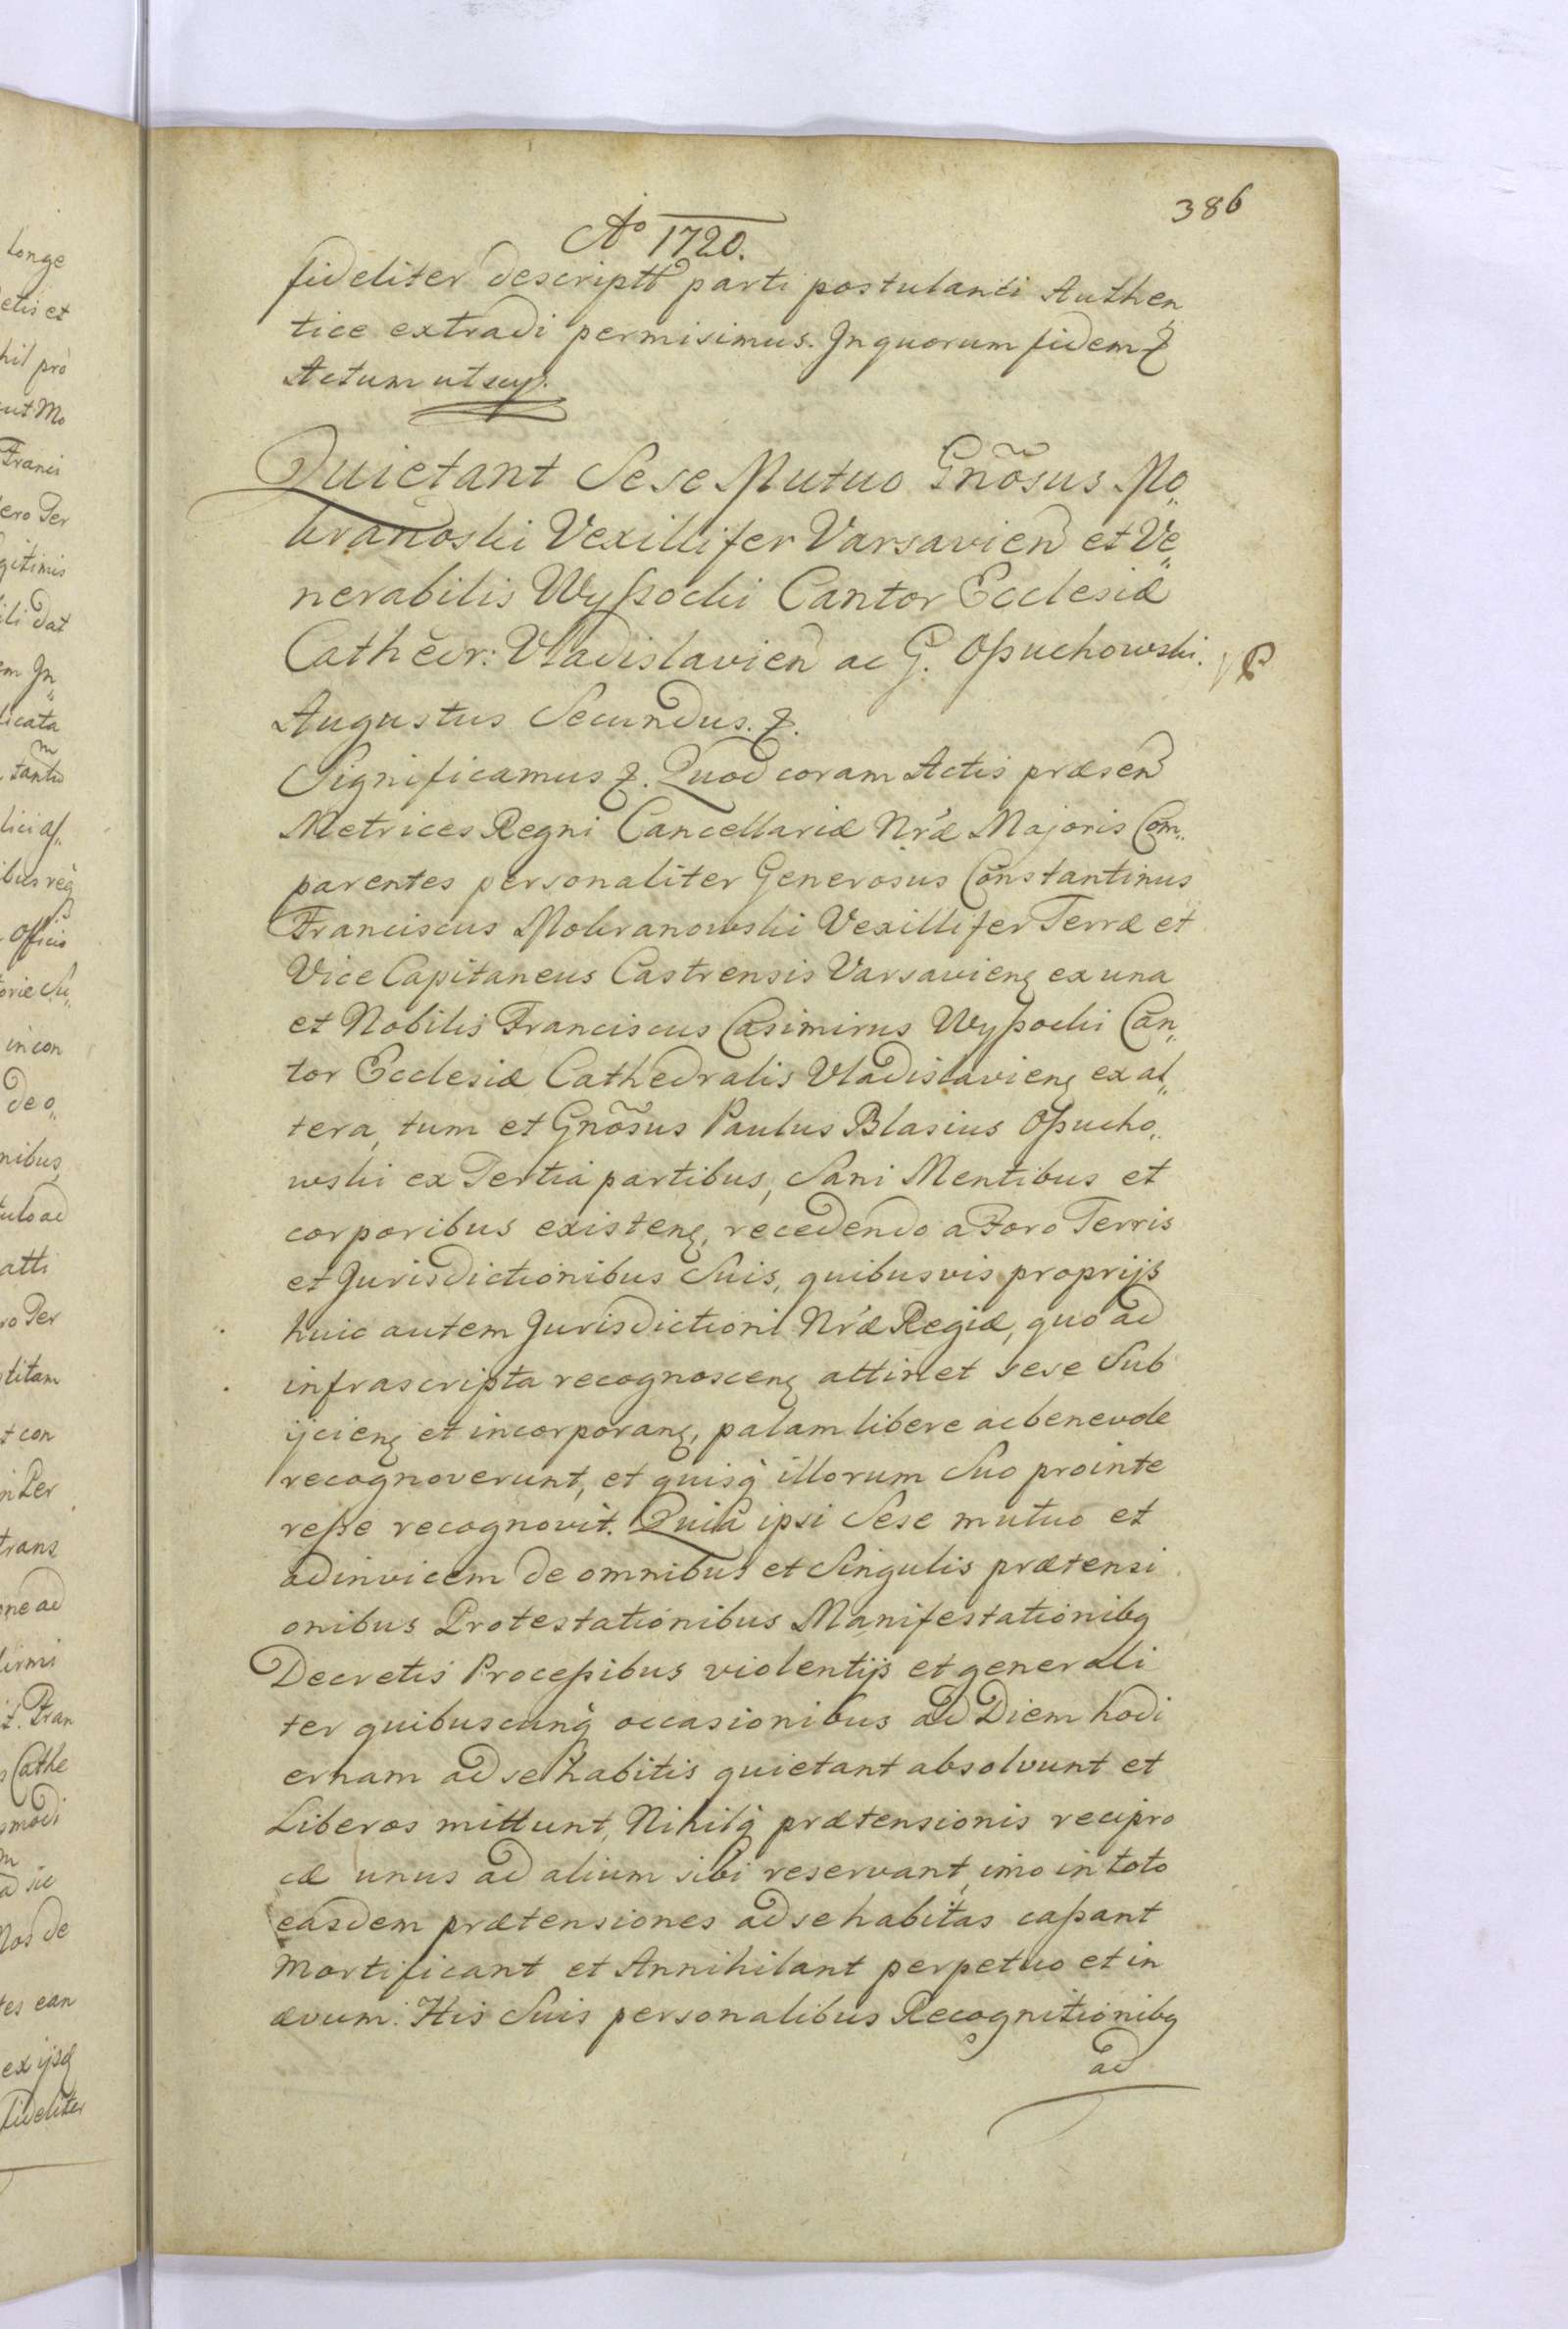 386
Ao 1720.
fideliter descriptt parti postulanti Authen„
tice extradi permisimus. In quorum fidem &
Actum ut sup.
Quietant Sese Mutuo Gnõsus Mo„
kranoski Vexillifer Varsavien et Ve„
nerabilis Wyſsocki Cantor Ecclesiæ
Cathedr: Vladislavien ac G. Oſsuchowski.
Augustus Secundus. &.
Significamus &. Quod coram Actis præsen
Metrices Regni Cancellariæ Nr̃æ Majoris Com„
parentes personaliter Generosus Constantinus
Franciscus Mokranowski Vexillifer Terræ et
Vice Capitaneus Castrensis Varsavien ex una
et Nobilis Franciscus Casimirus Wyſsocki Can„
tor Ecclesiæ Cathedralis Vladislavien ex al„
tera, tum et Gnõsus Paulus Blasius Oſsucho„
wski ex Tertia partibus, Sani Mentibus et
corporibus existen, recedendo a Foro Terris
et Jurisdictionibus Suis, quibusvis proprijs
huic autem Jurisdictioni Nr̃æ Regiæ, quo ad
infrascripta recognoscen attinet sese Sub
ijcien et incorporan, palam libere ac benevole
recognoverunt, et quisq̀ illorum Suo pro inte
reſse recognovit. Quia ipsi Sese mutuo et
adinvicem de omnibus et Singulis prætensi
onibus Protestationibus Manifestationibq
Decretis Proceſsibus violentijs et generali
ter quibuscunq̀ occasionibus ad Diem hodi
ernam ad se habitis quietant absolvunt et
Liberos mittunt, Nihilq̀ prætensionis recipro
cæ unus ad alium sibi reservant, imo in toto
easdem prætensiones ad se habitas caſsant
Mortificant et Annihilant perpetuo et in
ævum. His Suis personalibus Recognitionibq
ad